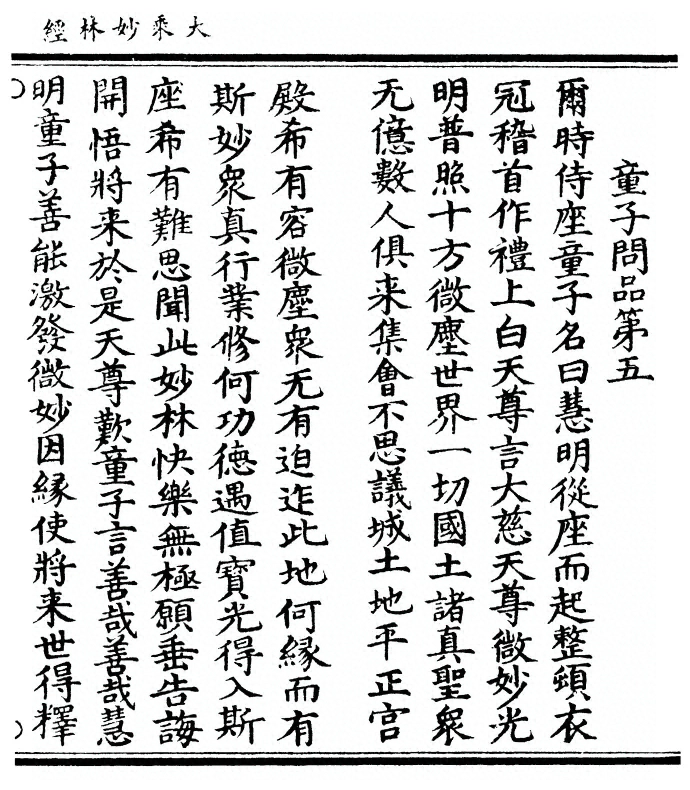 大乘妙林經
童子問品第五
爾時侍座童子名曰慧明從座而起整頓衣
冠稽首作禮上白天尊言大慈天尊微妙光
明普照十方微塵世界一切國土諸真聖衆
无億數人俱来集會不思議城土地平正宫
殿希有容微塵衆无有迫迮此地何緣而有
斯妙衆真行業修何功德遇值寶光得入斯
座希有難思聞此妙林快樂無極願垂告誨
開悟將来於是天尊歎童子言善哉善哉慧
明童子善能激發微妙因緣使將来世得釋